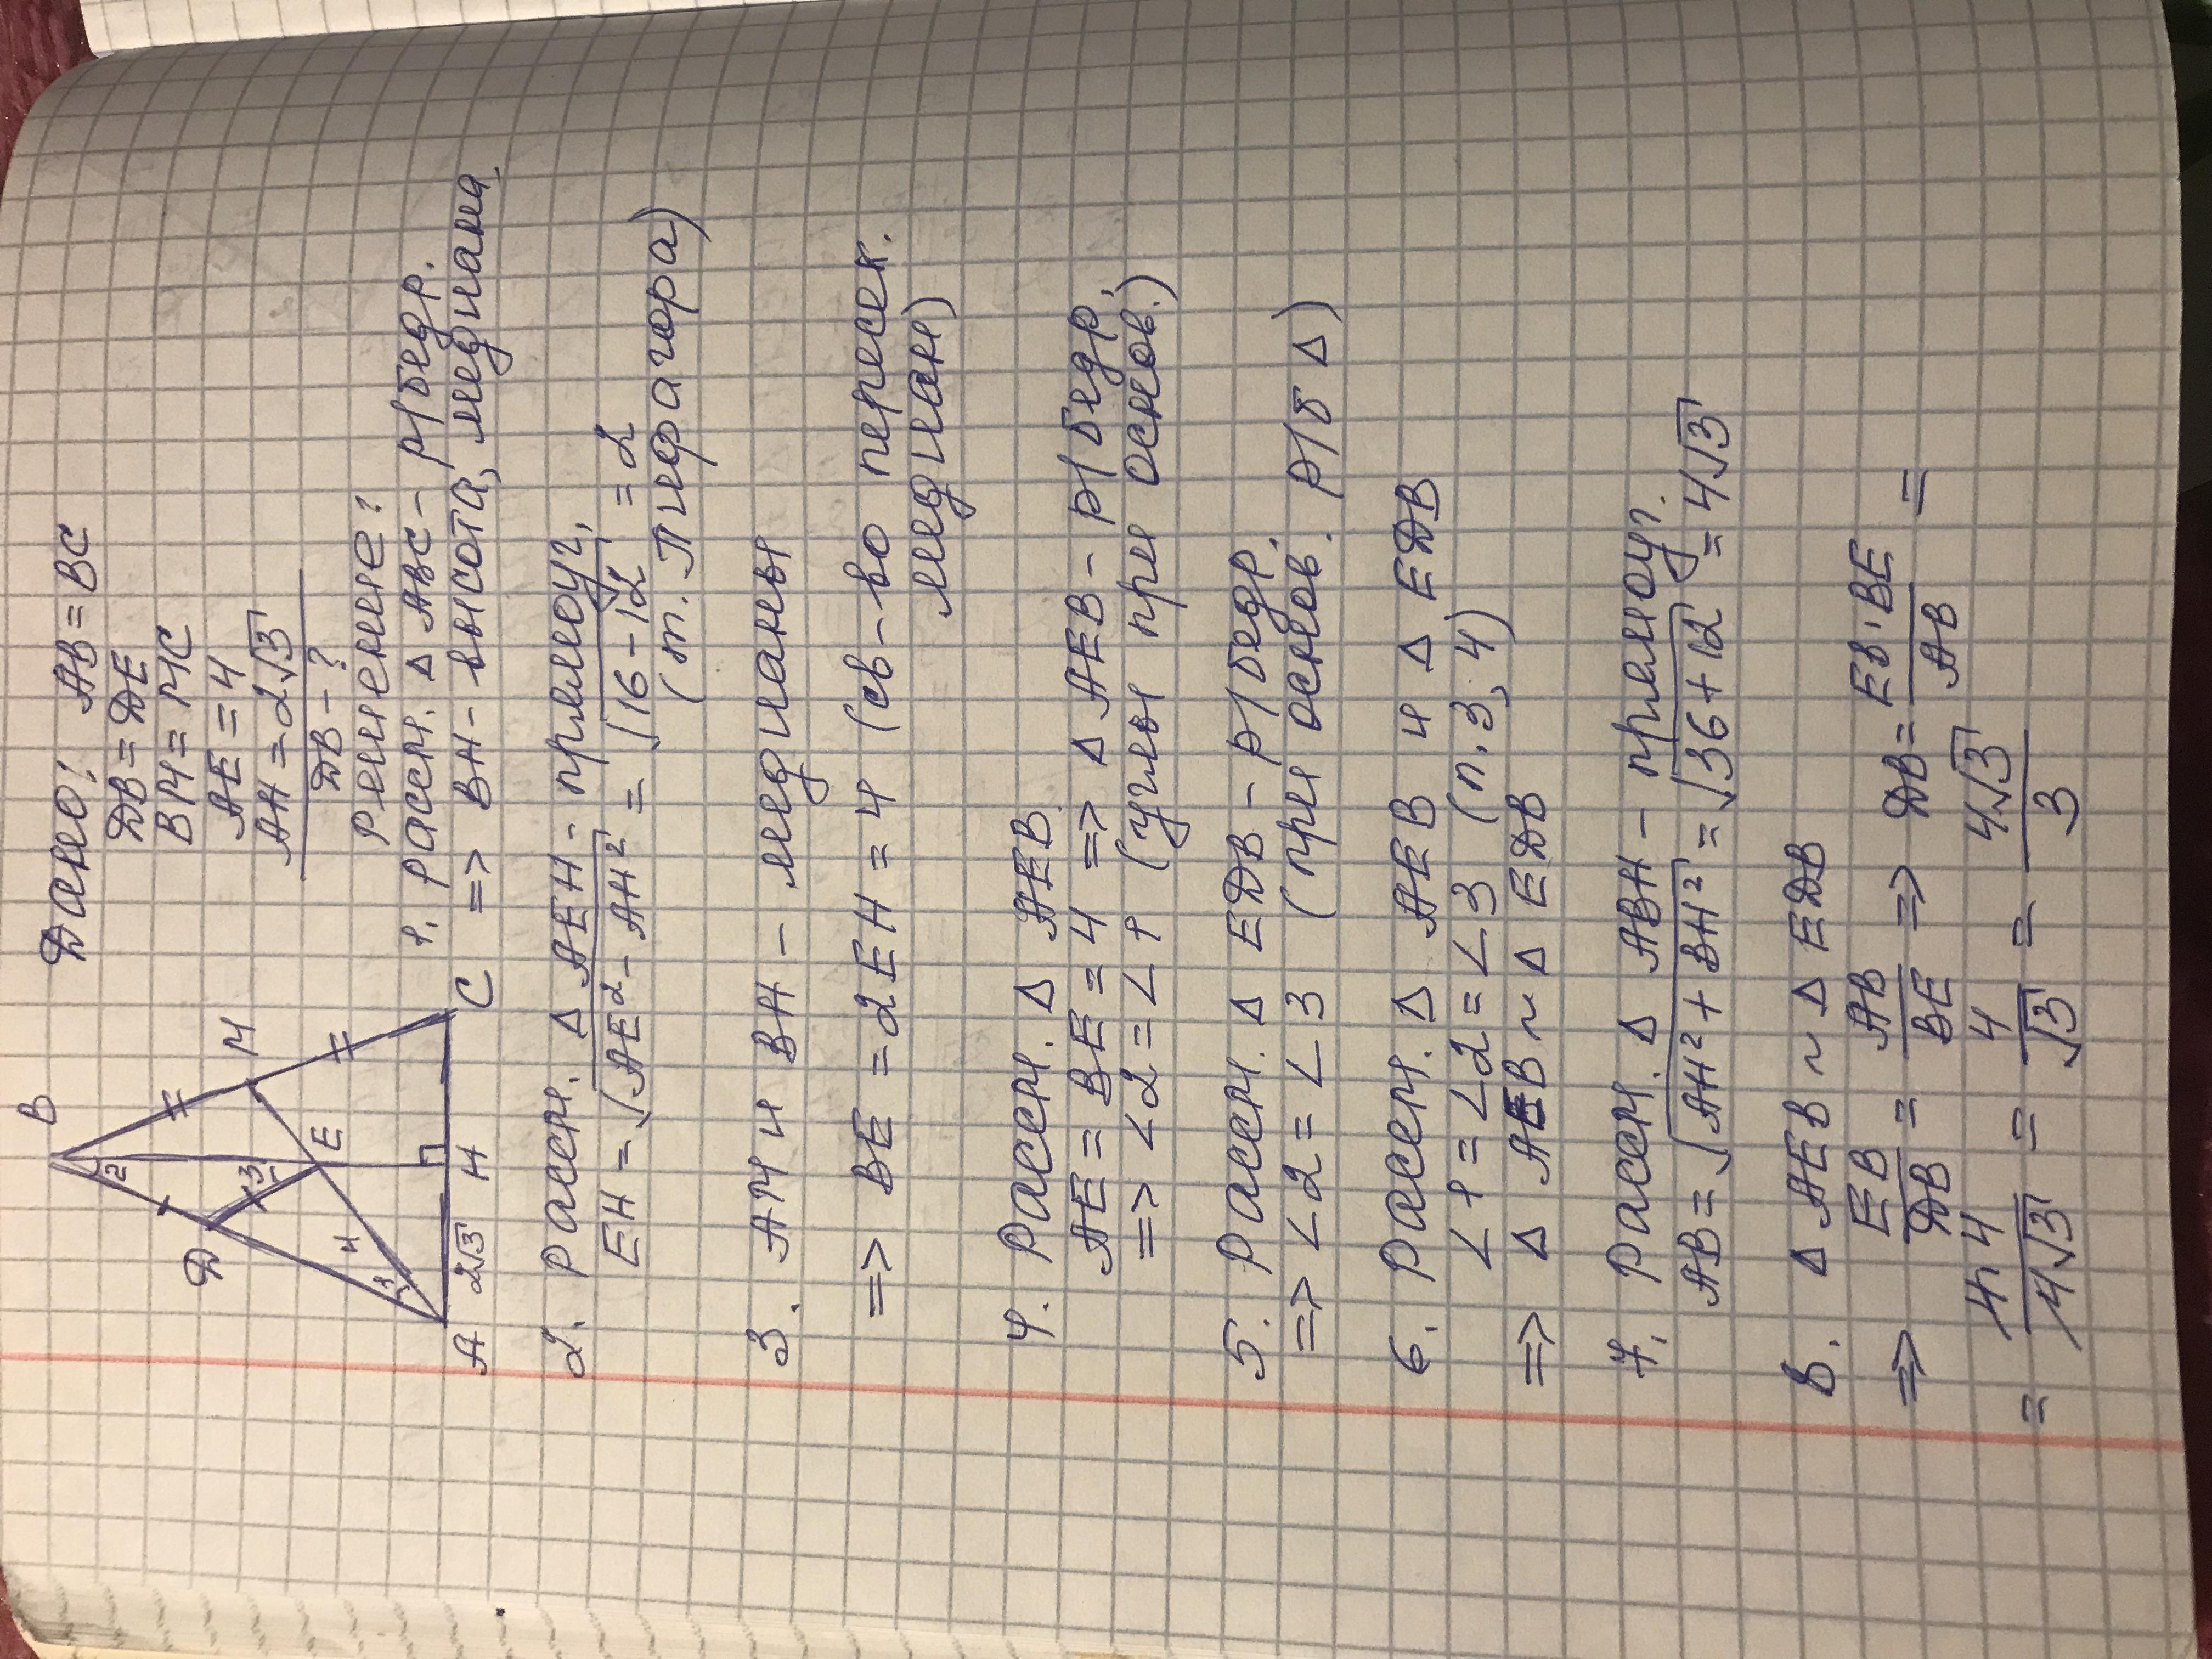 Дано: AB = BC
DB = DE
BM = MC
AE = 4
AH = 2√3
DB - ?
Решение:
B
2
M
D
3
E
4
1
A 2√3 H C
1. Рассм. Δ ABC - р/бедр.
=> BH - высота, медиана
2. Рассм. Δ AEH - прямоуг.
EH = √(AE² - AH²) = √(16 - 12) = 2
(т. Пифагора)
3. AM и BH - медианы
=> BE = 2EH = 4 (св-во пересек.
медиан)
4. Рассм. Δ AEB
AE = BE = 4 => Δ AEB - р/бедр,
=> ∠2 = ∠1 (углы при основ.)
5. Рассм. Δ EDB - р/бедр.
=> ∠2 = ∠3 (при основ. р/б Δ)
6. Рассм. Δ AEB и Δ EDB
∠1 = ∠2 = ∠3 (п. 3, 4)
=> Δ AEB ~ Δ EDB
7. Рассм. Δ ABH - прямоуг.
AB = √(AH² + BH²) = √(36 + 12) = 4√3
8. Δ AEB ~ Δ EDB
=> EB/DB = AB/BE => DB = EB·BE/AB =
= 4·4/4√3 = 4/√3 = 4√3/3